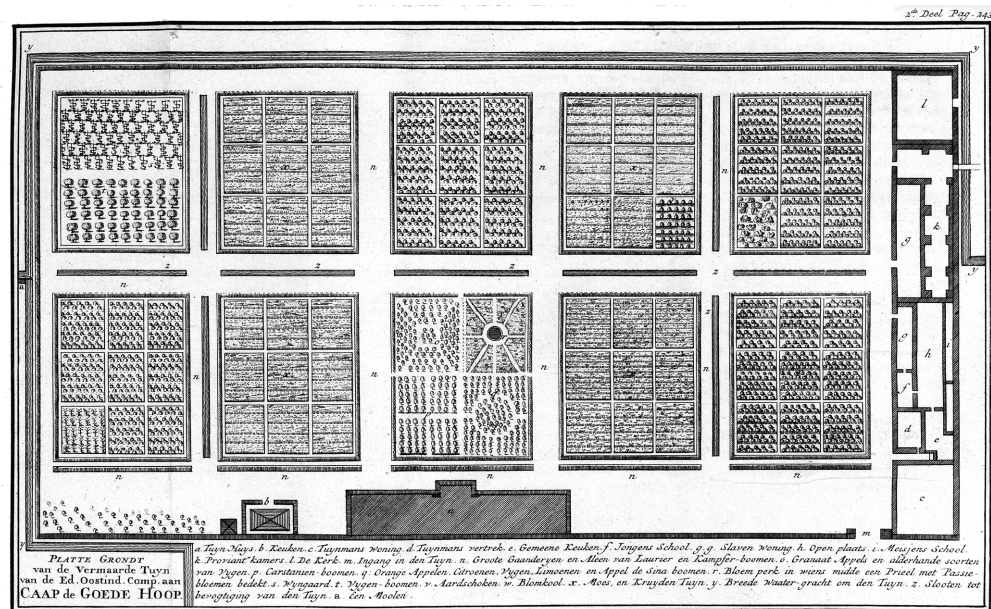 2.de Deel Pag. 243
y
y
l
x
n
x
n
n
k
g
z
z
z
z
y
a
n
z
g
n
n
h
i
x
x
f
d
e
n
n
n
n
b
c
a
m
y
PLATTE GRONDT
van de Vermaarde Tuyn
van de Ed. Oostind. Comp. aan
CAAP de GOEDE HOOP.
a Tuyn Huys. b. Keuken. c Tuynmans Woning. d. Tuynmans vertrek. e. Gemeene Keuken. f. Jongens School. g. g. Slaven Woning. h. Open plaats. i. Meisjens School.
k. Proviant kamers. l. De Kerk. m. Ingang in den Tuyn. n. Groote Gaanderyen en Aleen van Laurier en Kampfer-boomen. o. Granaat Appels en alderhande soorten
van Vygen. p. Carstanien-boomen. q. Orange Appelen, Citroenen, Vygen, Limoenen en Appel de Sina boomen. r. Bloem perk in wens midde een Prieel met Passie-
bloemen bedekt. s. Wyngaard. t. Vygen-boomen. v. Aardschoken. w. Blomkool. x. Moes, en Kruyden Tuyn. y. Breede Waater-gracht om den Tuyn. z. Slooten tot
bevogtiging van den Tuyn. a. Een Moolen.